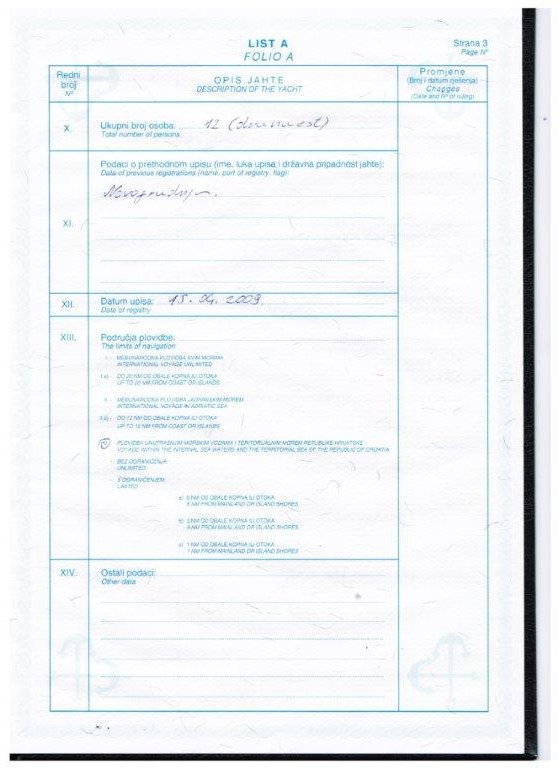 LIST A
FOLIO A
Strana 3
Page N°
Redni broj
N°
OPIS JAHTE
DESCRIPTION OF THE YACHT
Promjene
(Broj i datum rješenja)
Changes
(Date and N° of ruling)
X.
Ukupni broj osoba: 12 (dvanaest)
Total number of persons:
XI.
Podaci o prethodnom upisu (ime, luka upisa i državna pripadnost jahte):
Data of previous registrations (name, port of registry, flag):
XII.
Datum upisa: 15. 04. 2009.
Date of registry
XIII.
Područja plovidbe:
The limits of navigation
I. - MEĐUNARODNA PLOVIDBA SVIM MORIMA
INTERNATIONAL VOYAGE UNLIMITED
I.a) - DO 20 NM OD OBALE KOPNA ILI OTOKA
UP TO 20 NM FROM COAST OR ISLANDS
II. - MEĐUNARODNA PLOVIDBA JADRANSKIM MOREM
INTERNATIONAL VOYAGE IN ADRIATIC SEA
II.a) - DO 12 NM OD OBALE KOPNA ILI OTOKA
UP TO 12 NM FROM COAST OR ISLANDS
PLOVIDBA UNUTRAŠNJIM MORSKIM VODAMA I TERITORIJALNIM MOREM REPUBLIKE HRVATSKE
VOYAGE WITHIN THE INTERNAL SEA WATERS AND THE TERRITORIAL SEA OF THE REPUBLIC OF CROATIA
- BEZ OGRANIČENJA:
UNLIMITED
- S OGRANIČENJEM:
LIMITED
a) 6 NM OD OBALE KOPNA ILI OTOKA
6 NM FROM MAINLAND OR ISLAND SHORES
b) 3 NM OD OBALE KOPNA ILI OTOKA
3 NM FROM MAINLAND OR ISLAND SHORES
c) 1 NM OD OBALE KOPNA ILI OTOKA
1 NM FROM MAINLAND OR ISLAND SHORES
XIV.
Ostali podaci:
Other data